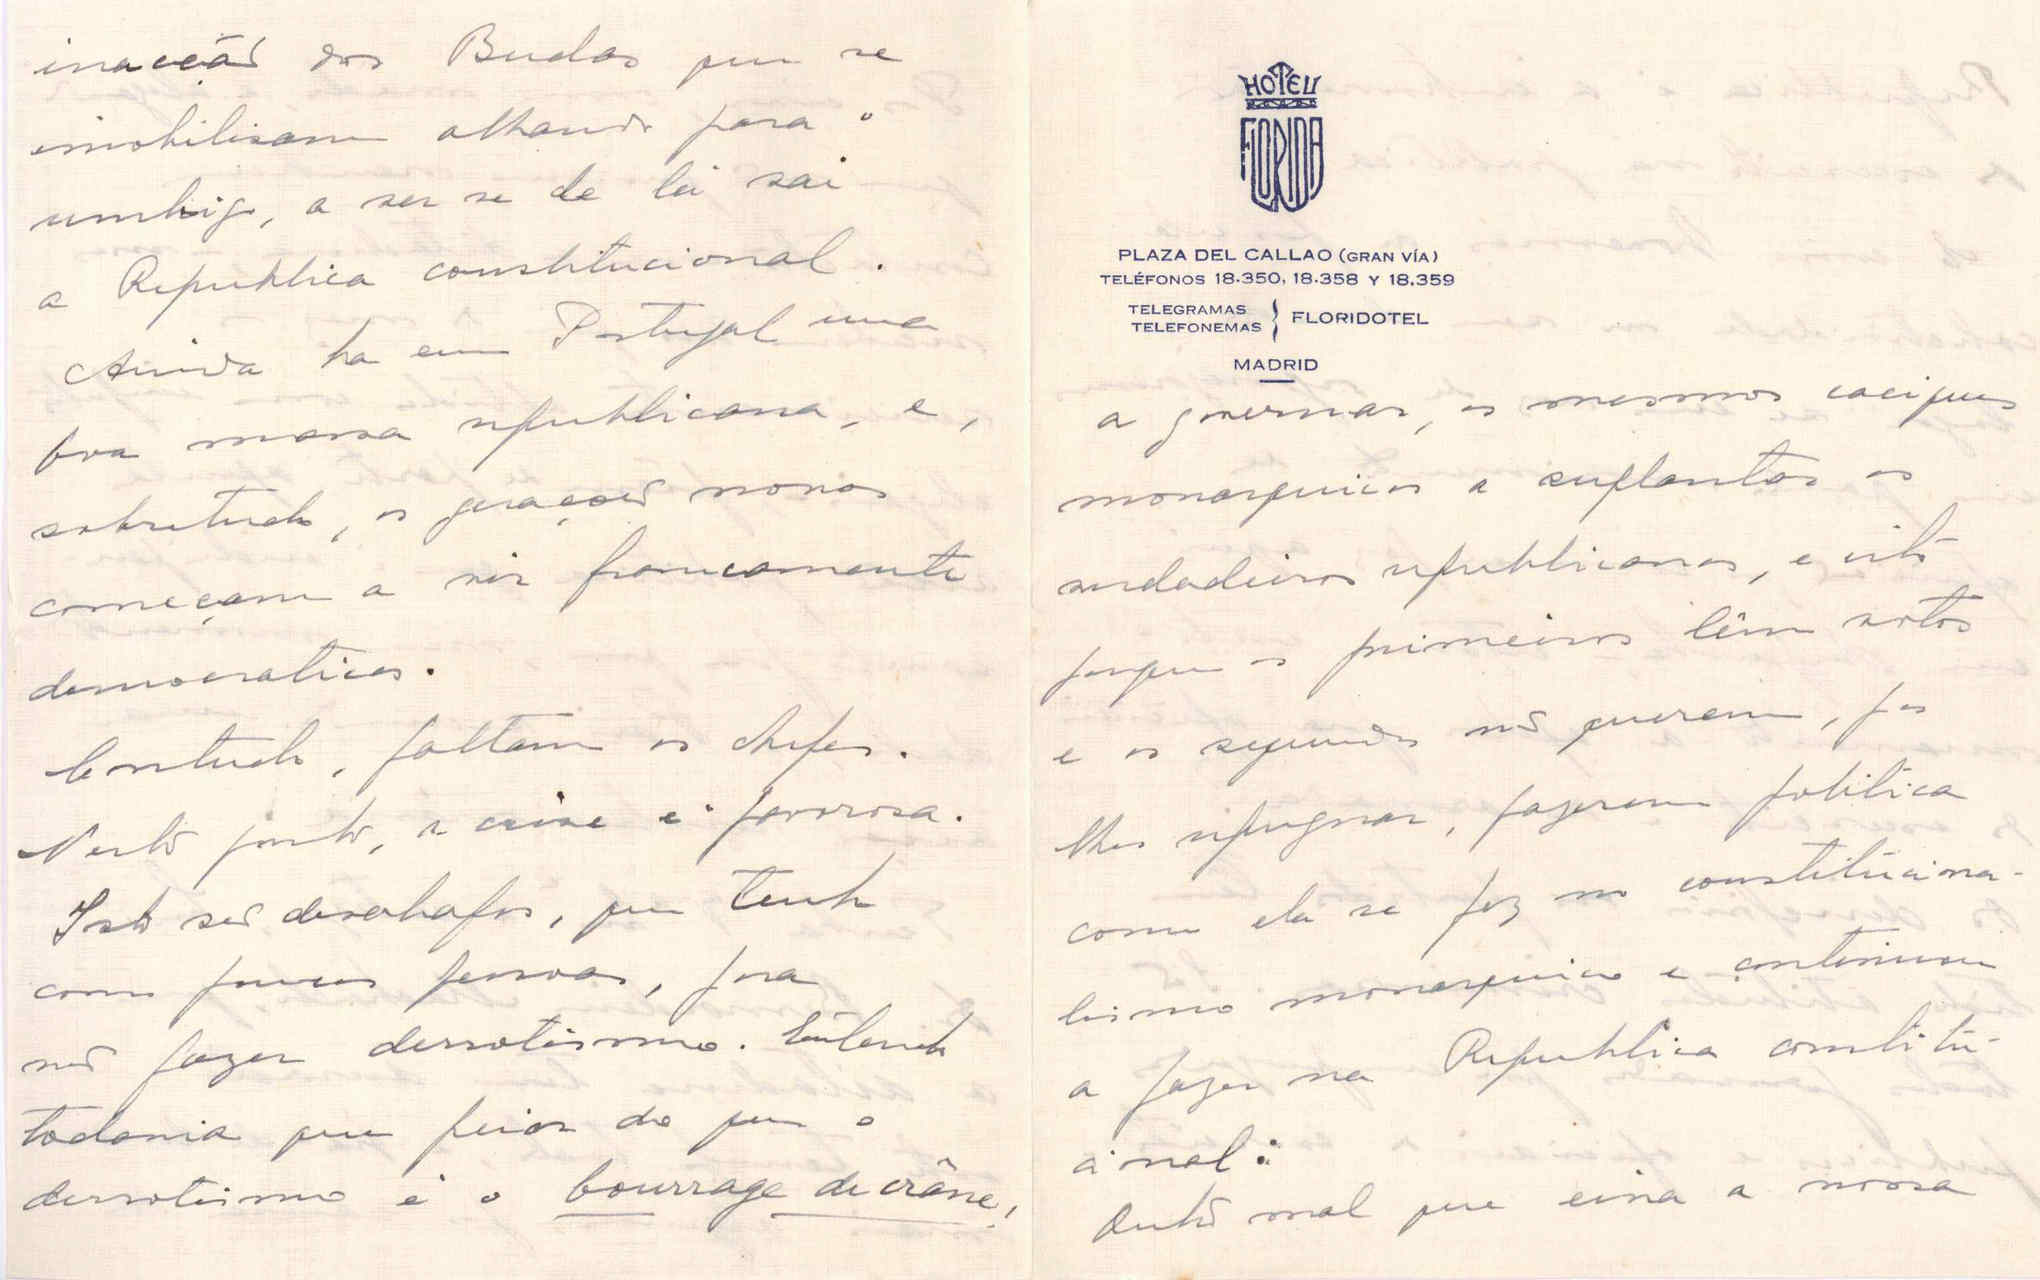 inacção dos Budas que se
imobilisam olhando para o
umbigo, a ver se de lá sai
a Republica constitucional.
Ainda ha em Portugal uma
boa massa republicana, e,
sobretudo, as gerações novas
começam a vir francamente
democraticas.
Contudo, faltam os chefes.
Neste ponto, a crise é pavorosa.
Isto são desabafos, que tenho
com poucas pessoas, para
não fazer derrotismo. Entendo
todavia que peior do que o
derrotismo é o bourrage de crâne,
HOTEL
FLORIDA
PLAZA DEL CALLAO (GRAN VÍA)
TELÉFONOS 18.350, 18.358 Y 18.359
TELEGRAMAS
TELEFONEMAS } FLORIDOTEL
MADRID
a governar, os mesmos caciques
monarquicos a suplantar os
verdadeiros republicanos, e isto
porque os primeiros têm votos
e os segundos não querem, por
lhes repugnar, fazerem politica
como ela se fez no constituciona-
lismo monarquico e continuou
a fazer na Republica constitu-
cional:
Outro mal que eiva a nossa